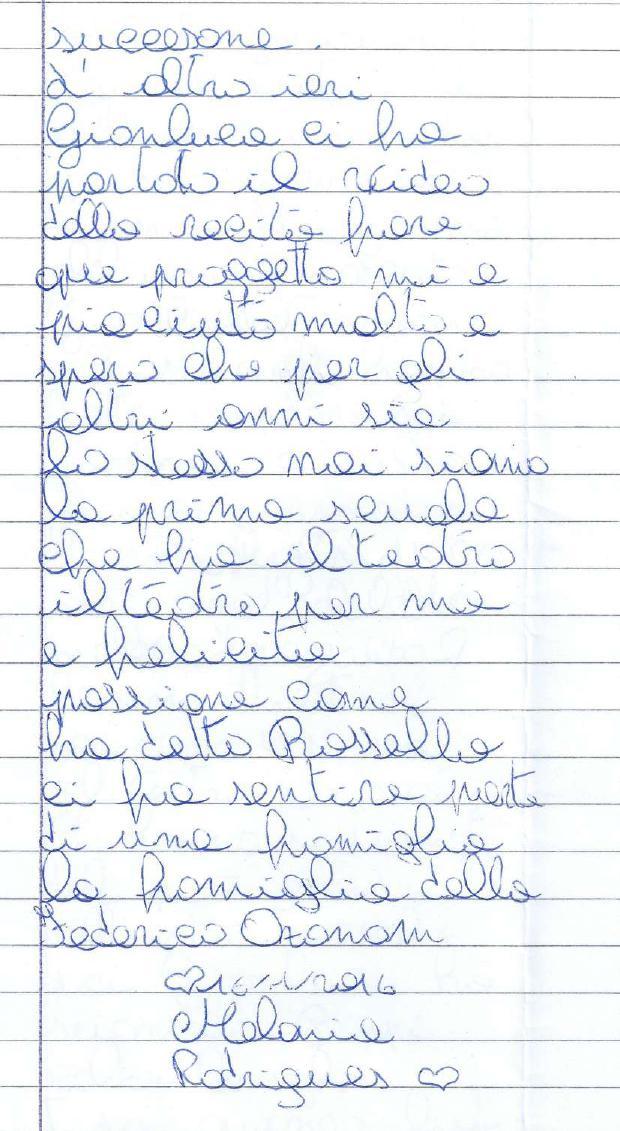 successone.
L' altro ieri
Gianluca ci ha
portato il video
della recita fare
que proggetto mi e
piaciuto molto e
spero che per gli
altri anni sia
lo stesso noi siamo
la prima scuola
che ha il teatro
il teatro per me
e felicita
passione come
ha detto Rossella
ci fa sentire parte
di una famiglia
la famiglia della
Federico Ozanam
♡16/1/2016
Melania
Rodrigues ♡